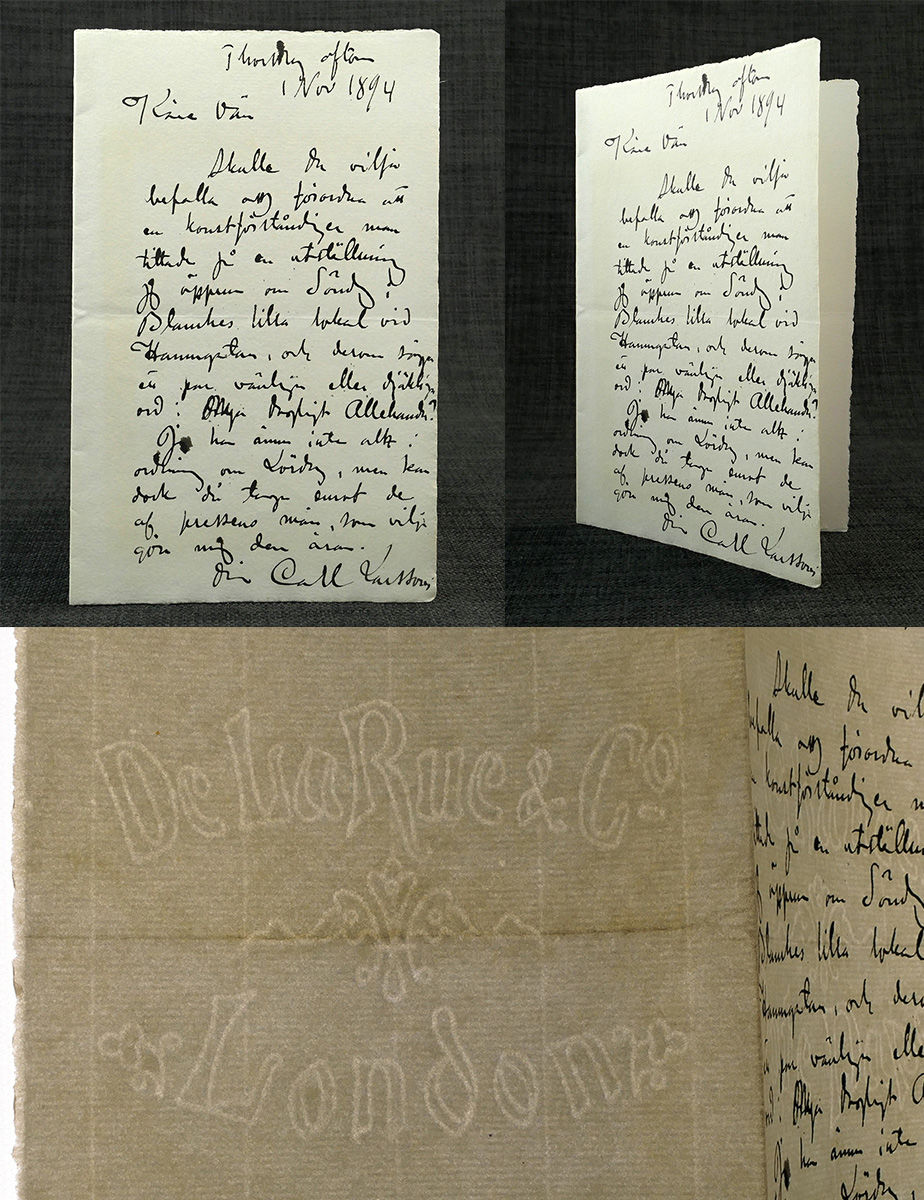 Thorsdag afton
1 Nov 1894
Käre Vän
Skulle du vilja
befalla förordna att
en konstförståndiger man
tittade på en utställning
jg öppnar om Söndag i
Blanches lilla lokal vid
Hamngatan, och derom säga
ett par vänliga eller djäkliga
ord i Nya Dagligt Allehanda?
Jg har ännu inte allt i
ordning om Lördag, men kan
dock då taga emot de
af pressens män, som vilja
göra mig den äran.
din Carl Larsson
Thorsdag afton
1 Nov 1894
Käre Vän
Skulle du vilja
befalla förordna att
en konstförståndiger man
tittade på en utställning
jg öppnar om Söndag i
Blanches lilla lokal vid
Hamngatan, och derom säga
ett par vänliga eller djäkliga
ord i Nya Dagligt Allehanda?
Jg har ännu inte allt i
ordning om Lördag, men kan
dock då taga emot de
af pressens män, som vilja
göra mig den äran.
din Carl Larsson
De La Rue & Co
London
Skulle du vil
befalla förordna
konstförståndiger
på en utställn
öppnar om Söndag
Blanches lilla lokal
Hamngatan, och dero
par vänliga elle
ord i Nya Dagligt A
Jg har ännu inte
Lördag,